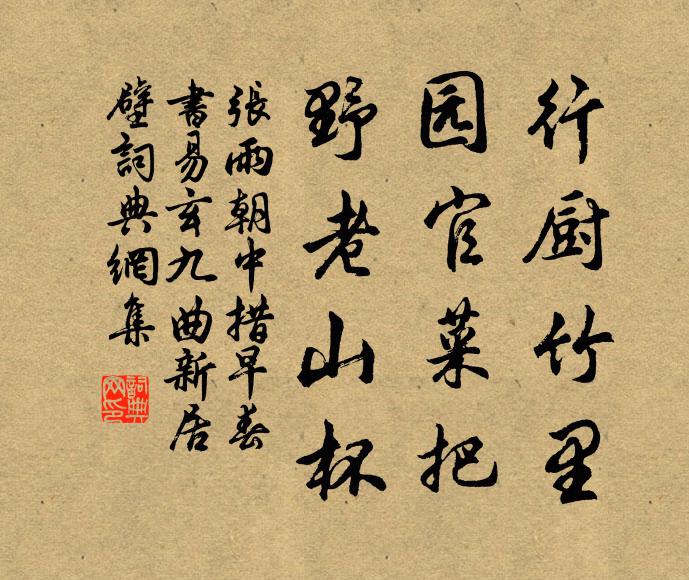 行厨竹里
园官菜把
野老山杯
張雨朝中措早春
書易玄九曲新居
壁詞典網集
詞典
网印